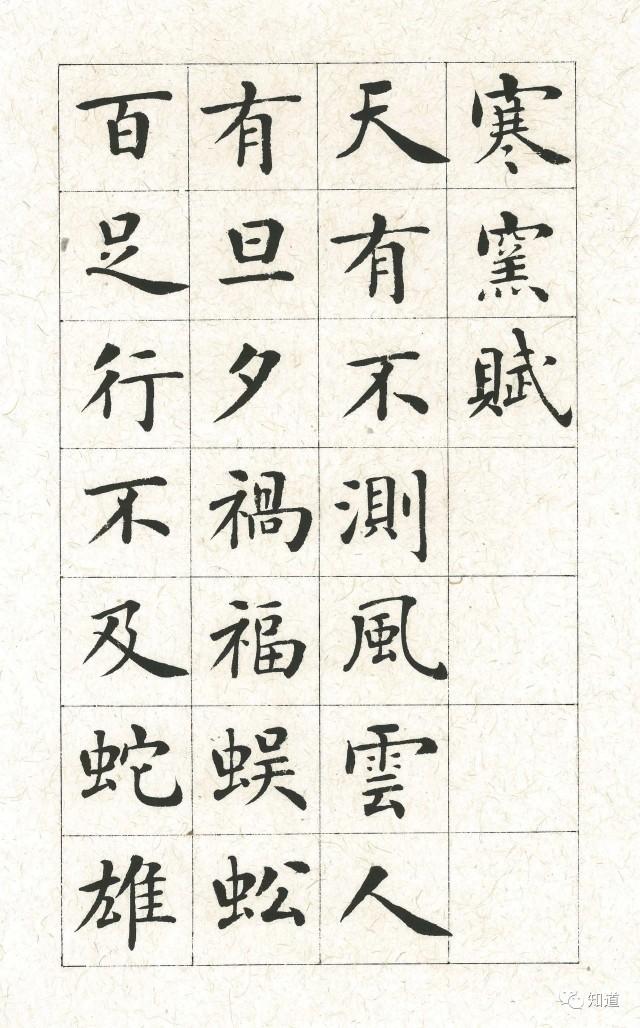 寒窯賦
天有不測風雲人
有旦夕禍福蜈蚣
百足行不及蛇雄
知道